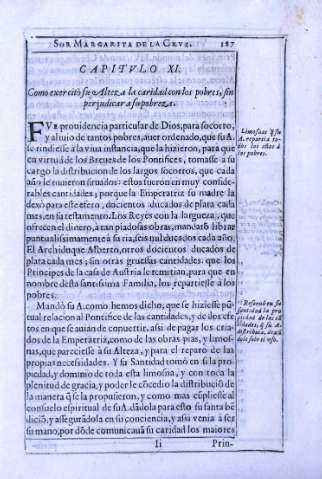 SOR MARGARITA DE LA CRVZ. 187
CAPITVLO XI.
Como exercitò su Alteza la caridad con los pobres, sin
perjudicar a su pobreza.
FVE providencia particular de Dios, para socorro,
y aliuio de tantos pobres, auer ordenado, que su A.
se rindiesse à la viua instancia, que la hizieron, para que
en virtud de los Breues de los Pontifices, tomasse a su
cargo la distribucion de los largos socorros, que cada
año le fueron fiando: estos fueron en muy conside-
rables cantidades, porque la Emperatriz su madre la
dexò para este efeto, docientos ducados de plata cada
mes, en su testamento. Los Reyes con la largueza, que
ofrecen el dinero, à tan piadosas obras, mandarõ librar
puntualissimamente à su ria, seis mil ducados cada año.
El Archiduque Alberto, otros docientos ducados de
plata cada mes; sin otras gruessas cantidades, que los
Principes de la casa de Austria le remitian, para que en
nombre desta santissima Familia, los repartiesse à los
pobres.
Mandò su A. como hemos dicho, que se hiziesse pũ
tual relacion al Pontifice de las cantidades, y de los efe
tos en que se auian de conuertir, assi de pagar los cria-
dos de la Emperatriz, como de las obras pias, y limos-
nas, que pareciesse à su Alteza, y para el reparo de las
propias necessidades. Y su Santidad tomò en si la pro-
piedad, y dominio de toda esta limosna, y con toda la
plenitud de gracia, y poder le cõcedio la distribuciõ de
la manera q̃ se la propusieron, y como mas cũpliesse al
consuelo espiritual de su A. dãdola para esto su santa bẽ
diciõ, y assegurãdola en su conciencia, y assi venia à ser
su mano, por dõde comunicaua su caridad los maiores
Ii Prin-
Limosnas q̃ su
A. repartia to-
dos los años à
los pobres.
Reseruò en su
santidad la pro
piedad de las cã
tidades, q̃ su A.
distribuia, dexã
dole solo el vso.